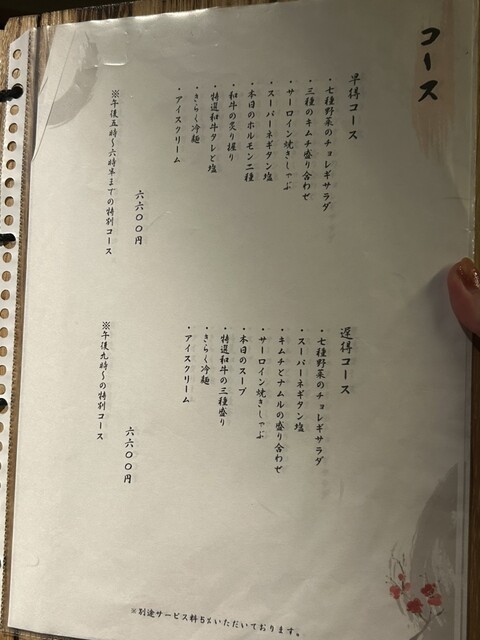 コース
早得コース
・七種野菜のチョレギサラダ
・三種のキムチ盛り合わせ
・サーロイン焼きしゃぶ
・スーパーネギタン塩
・本日のホルモン二種
・和牛の炙り握り
・特選和牛タレと塩
・きらく冷麺
・アイスクリーム
六六〇〇円
※午後五時〜六時半までの特別コース
遅得コース
・七種野菜のチョレギサラダ
・スーパーネギタン塩
・キムチとナムルの盛り合わせ
・サーロイン焼きしゃぶ
・本日のスープ
・特選和牛の三種盛り
・きらく冷麺
・アイスクリーム
六六〇〇円
※午後九時〜の特別コース
※別途サービス料5%いただいております。